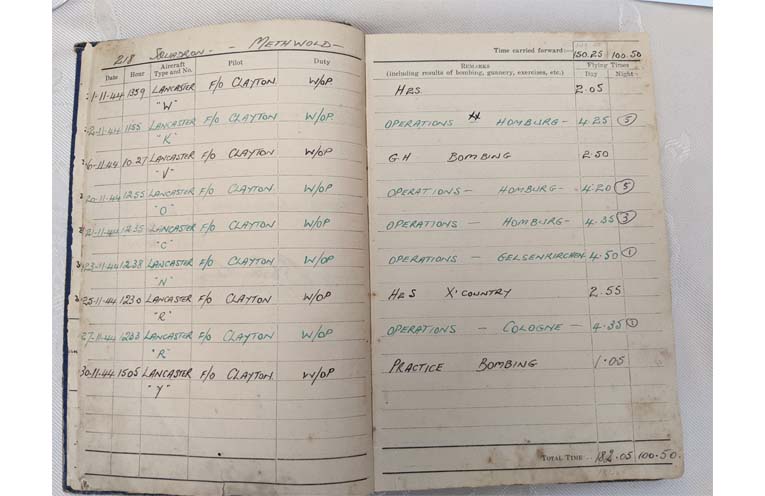 218 SQUADRON - - METHWOLD -
Date Hour Aircraft Type and No. Pilot Duty
1-11-44 1359 LANCASTER "W" F/O CLAYTON W/OP
2-11-44 1155 LANCASTER "K" F/O CLAYTON W/OP
6-11-44 10.27 LANCASTER "V" F/O CLAYTON W/OP
20-11-44 1255 LANCASTER "O" F/O CLAYTON W/OP
21-11-44 1235 LANCASTER "C" F/O CLAYTON W/OP
23-11-44 1238 LANCASTER "N" F/O CLAYTON W/OP
25-11-44 1230 LANCASTER "R" F/O CLAYTON W/OP
27-11-44 1233 LANCASTER "R" F/O CLAYTON W/OP
30-11-44 1505 LANCASTER "Y" F/O CLAYTON W/OP
Time carried forward:— 150.25 100.50
REMARKS (including results of bombing, gunnery, exercises, etc.) Flying Times Day Night
HRS 2.05
OPERATIONS HOMBURG - 4.25 5
G.H BOMBING 2.50
OPERATIONS - HOMBURG - 4.20 5
OPERATIONS - HOMBURG - 4.35 3
OPERATIONS - GELSENKIRCHEN 4.50 1
HRS X'COUNTRY 2.55
OPERATIONS - COLOGNE - 4.35 1
PRACTICE BOMBING 1.05
TOTAL TIME 182.05 100.50